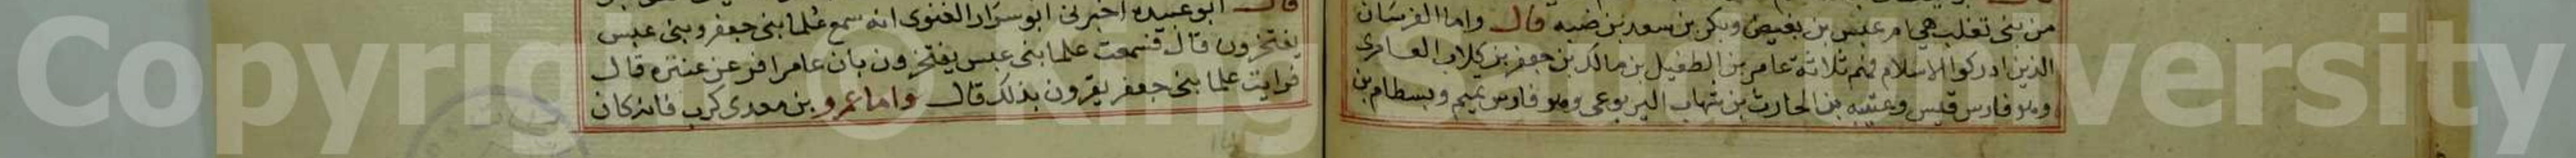 من بنى تغلب هى ام عبس بن بغيض وبكر بن سعد بن ضبه قال واما الفرسان
الذين ادركوا الاسلام فهم ثلاثة عامر بن الطفيل بن مالك بن جعفر بن كلاب العامرى
وهو فارس قيس وعتيبه بن الحارث بن شهاب اليربوعى وهو فارس تميم وبسطام بن
قال ابو عبيده اخبرنى ابو سوار الغنوى انه سمع علما بنى جعفر وبنى عبس
يفتخرون قال فسمعت علما بنى عبس يفتخرون بان عامرا فر عن عنتره قال
فرايت علما بنى جعفر يقرون بذلك قال واما عمرو بن معدى كرب فانه كان
Copyright © King University